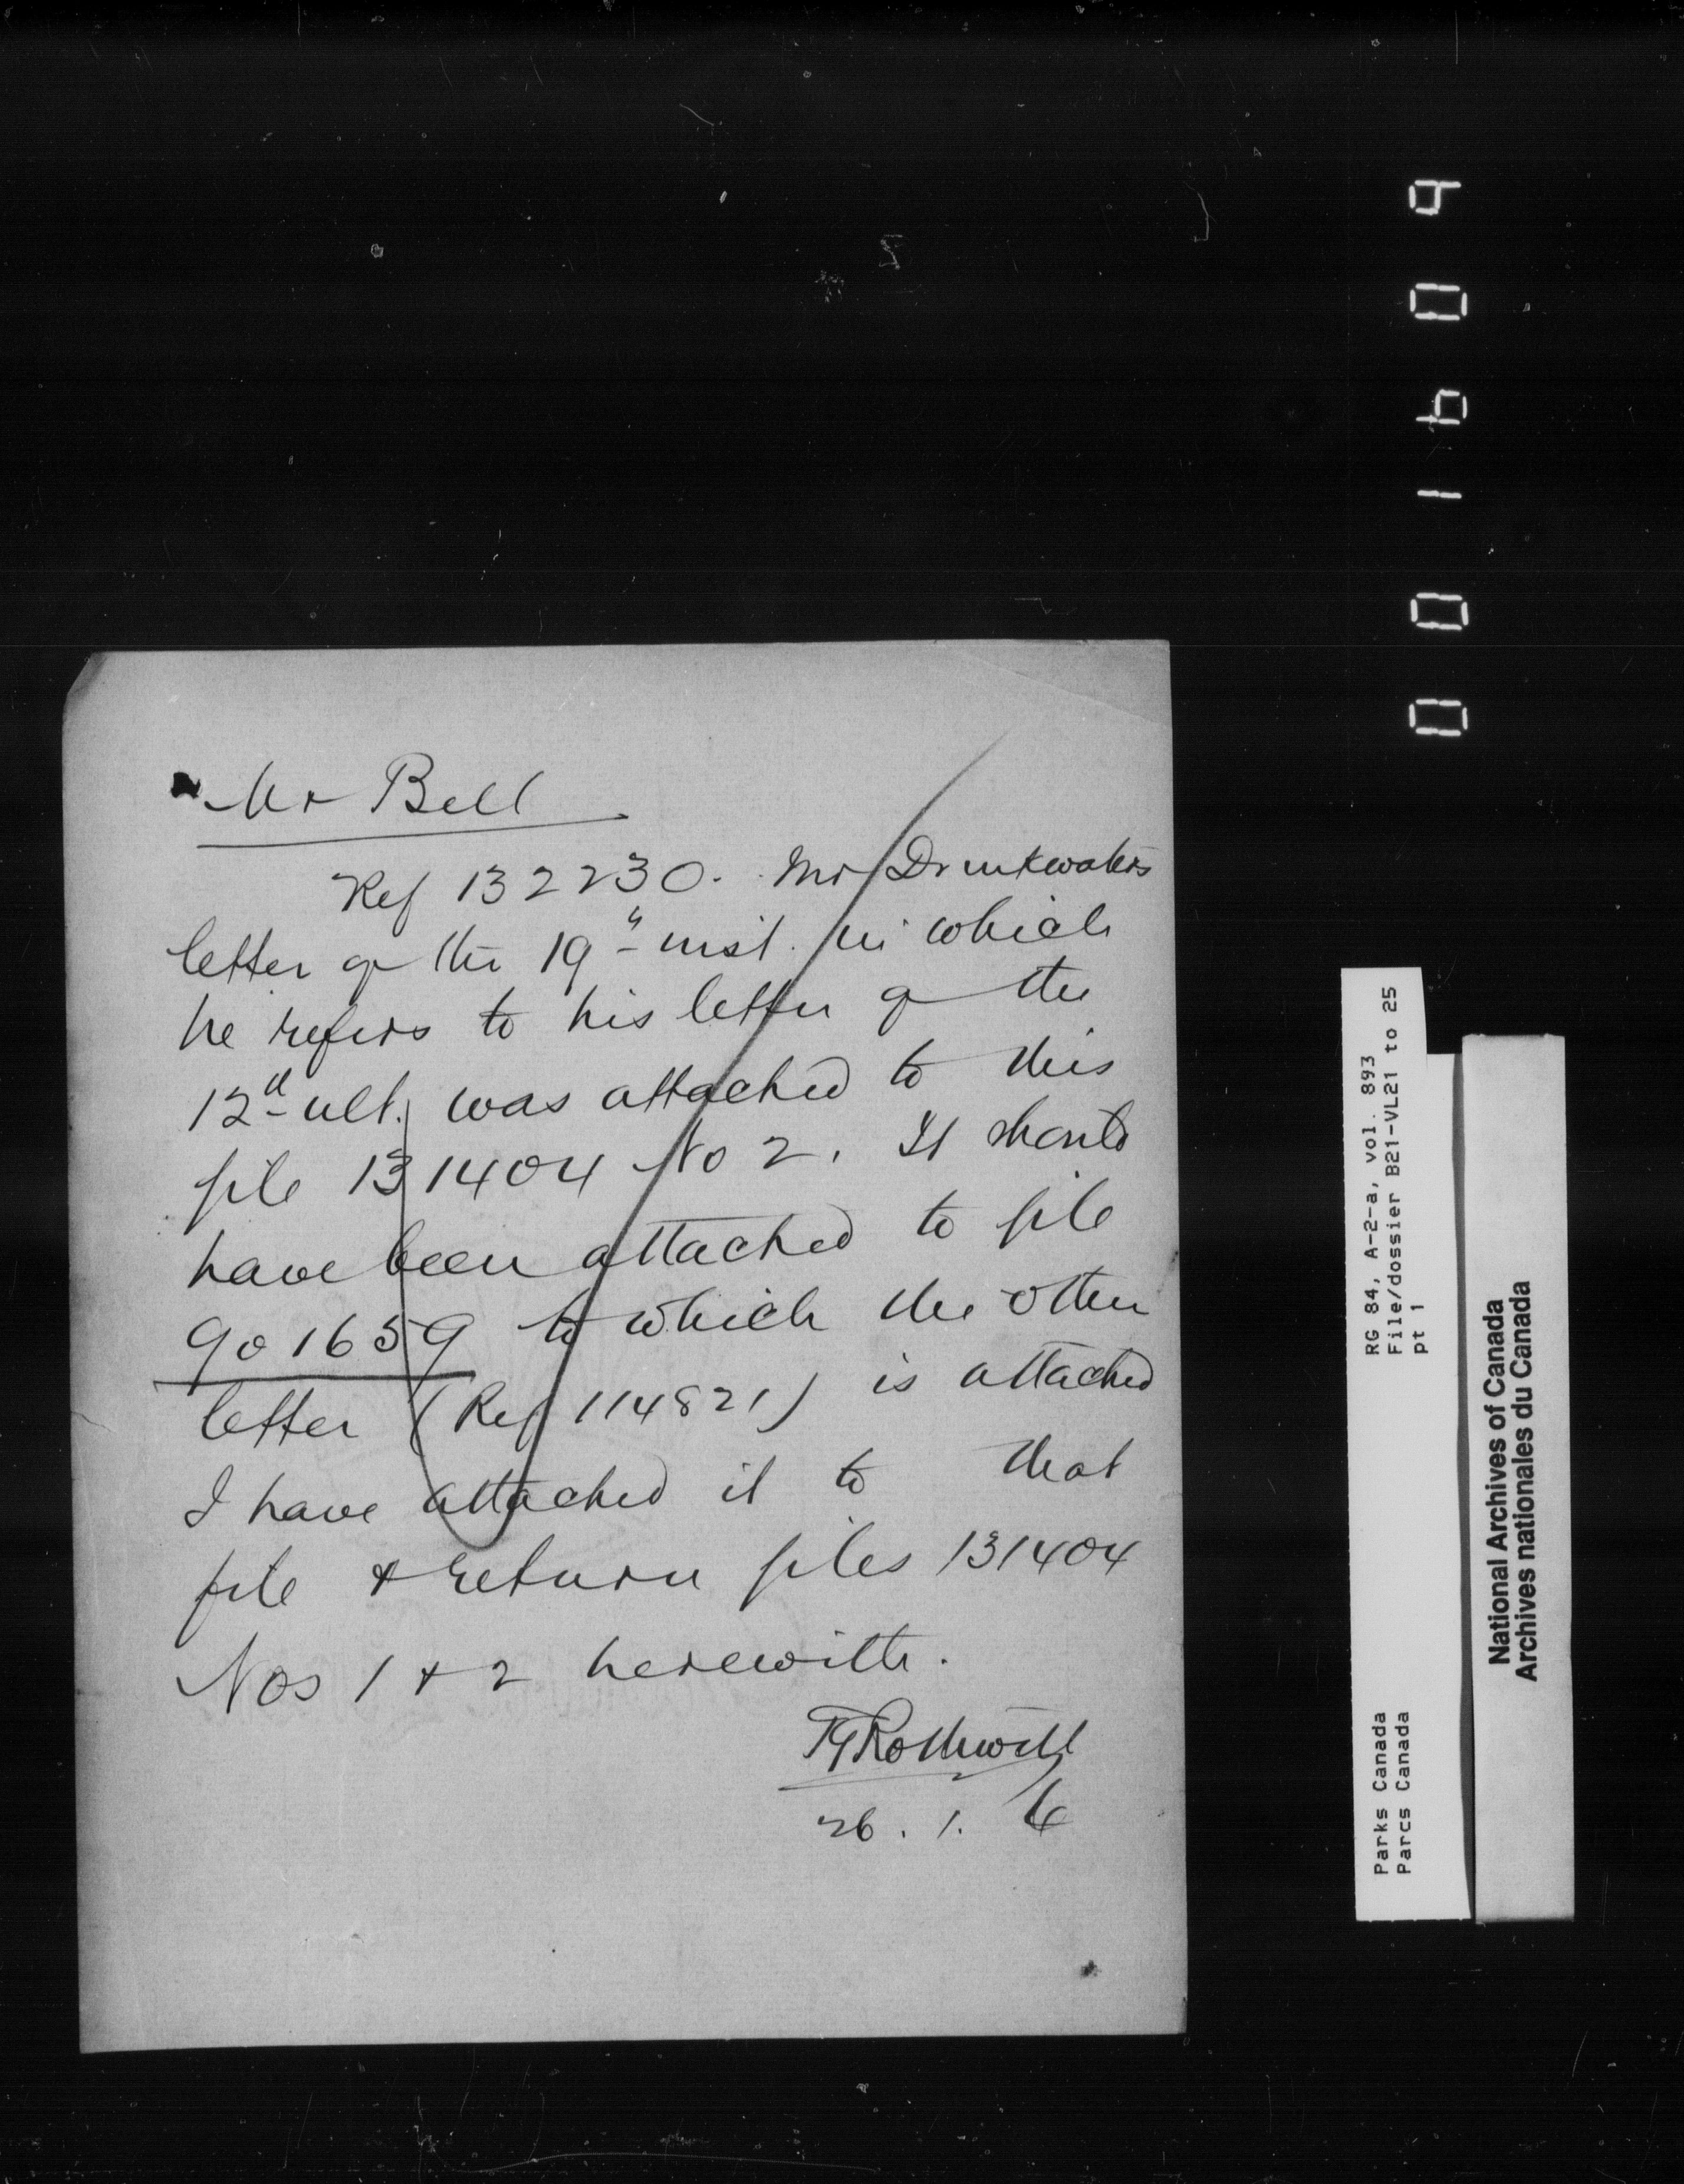 Mr Bell
Ref 132230. Mr Drinkwater's
letter of the 19" inst. in which
he refers to his letter of the
12th ult. was attached to this
file 131404 No 2. It should
have been attached to file
901659 to which the other
letter (Ref 114821) is attached
I have attached it to that
file & return files 131404
Nos 1 & 2 herewith.
Rothwell
26. 1.
RG 84, A-2-a, vol. 893
File/dossier B21-VL21 to 25
pt 1
Parks Canada
Parcs Canada
National Archives of Canada
Archives nationales du Canada